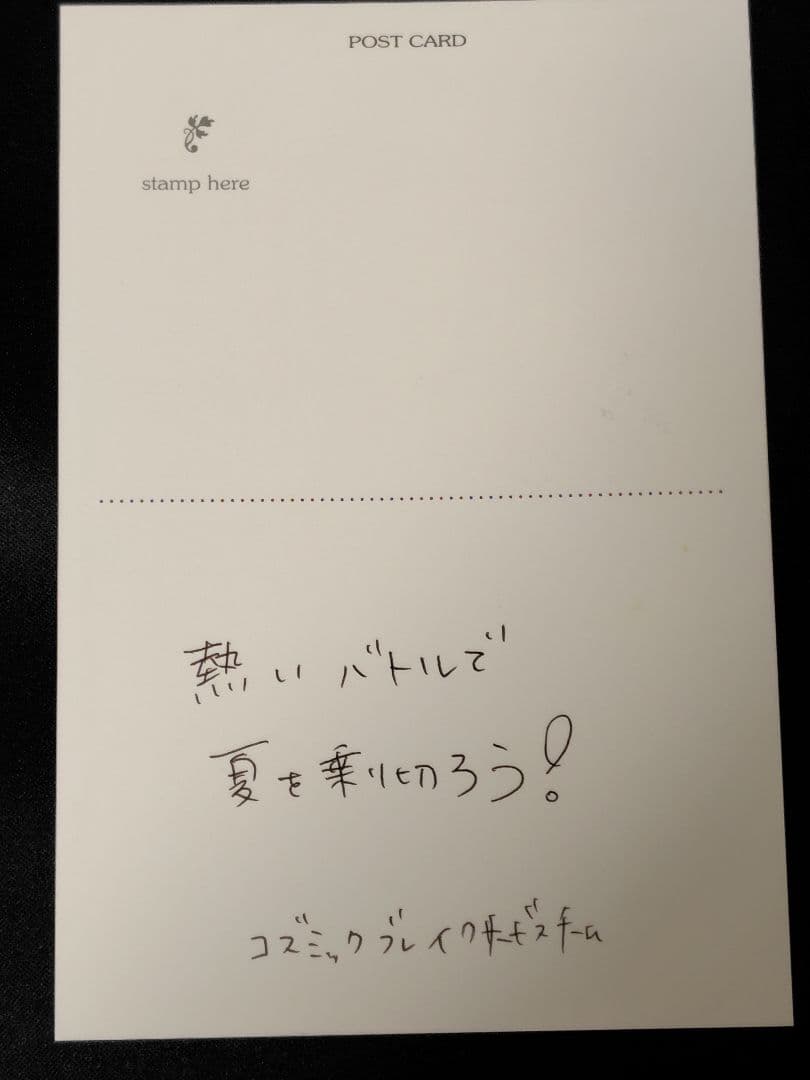 POST CARD
stamp here
熱いバトルで
夏を乗り切ろう!
コズミックブレイクサービスチーム